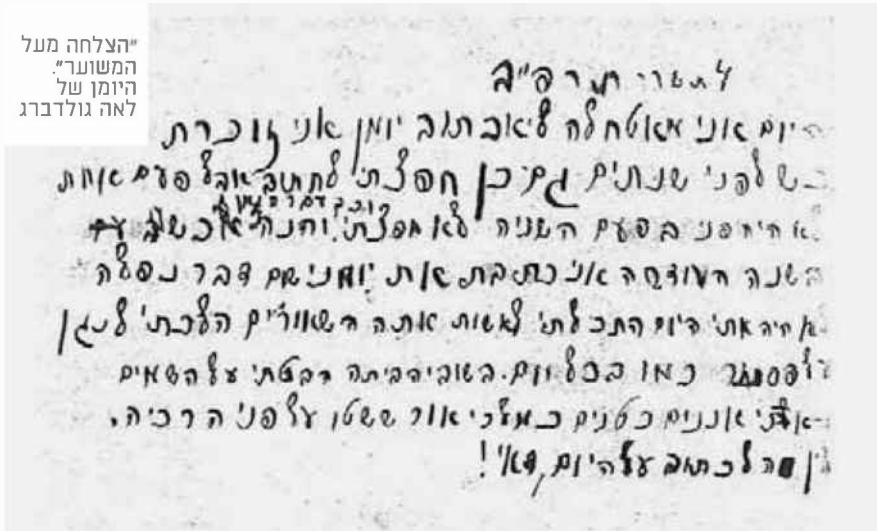 "הצלחה מעל
המשוער".
היומן של
לאה גולדברג
תשרי תרפ"ב
היום אני מאטחלה ליאכתוב יומן אני זוכרת
ש לפני שנתים גם כן חפצתי לחתוב אבל פעם אחת
בפעם השניה לא חפצתי והנה אכשב
בשנה העודחה אני כתבת את יומני שם דבר נפלה
היום התכלתי לאשות אתה השאורים הלכתי לנגן
על פסנתר כמו בכל יום. בשובי הביתה הבטתי על השמים
אננים כטנים כמלכי אור ששטו על פני הרכיה.
אין מה לכתוב על היום, דאי!